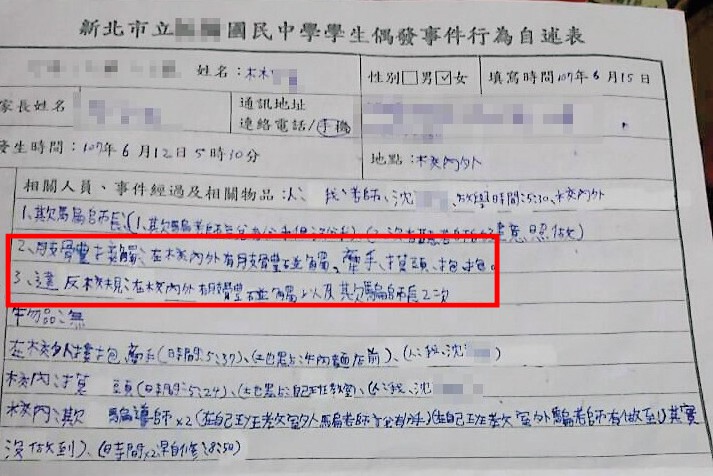 新北市立 國民中學學生偶發事件行為自述表
姓名：林 性別□男☑女 填寫時間107年6月15日
家長姓名 通訊地址
連絡電話/手機
發生時間：107年6月12日5時10分 地點：校內外
相關人員、事件經過及相關物品：人：我、老師、沈 放學時間5:30、校內外
1、欺騙師長：(1、欺騙老師
2、肢體接觸：在校內外有肢體碰觸、牽手、摸頭、抱抱。
3、違反校規：在校內外有肢體碰觸以及欺騙師長2次
物品：無
在校外：摟抱、牽手(時間：5:37)、(地點：牛肉麵店前)、(人：我、沈
校內：摸 頭(時間：5:24)、(地點：自己班教室)、(人：我、沈
校內：欺 騙導師×2(在自己班教室外騙老師 (在自己班教室外騙老師有做到)其實
沒做到)、(時間×2早自修8:50)